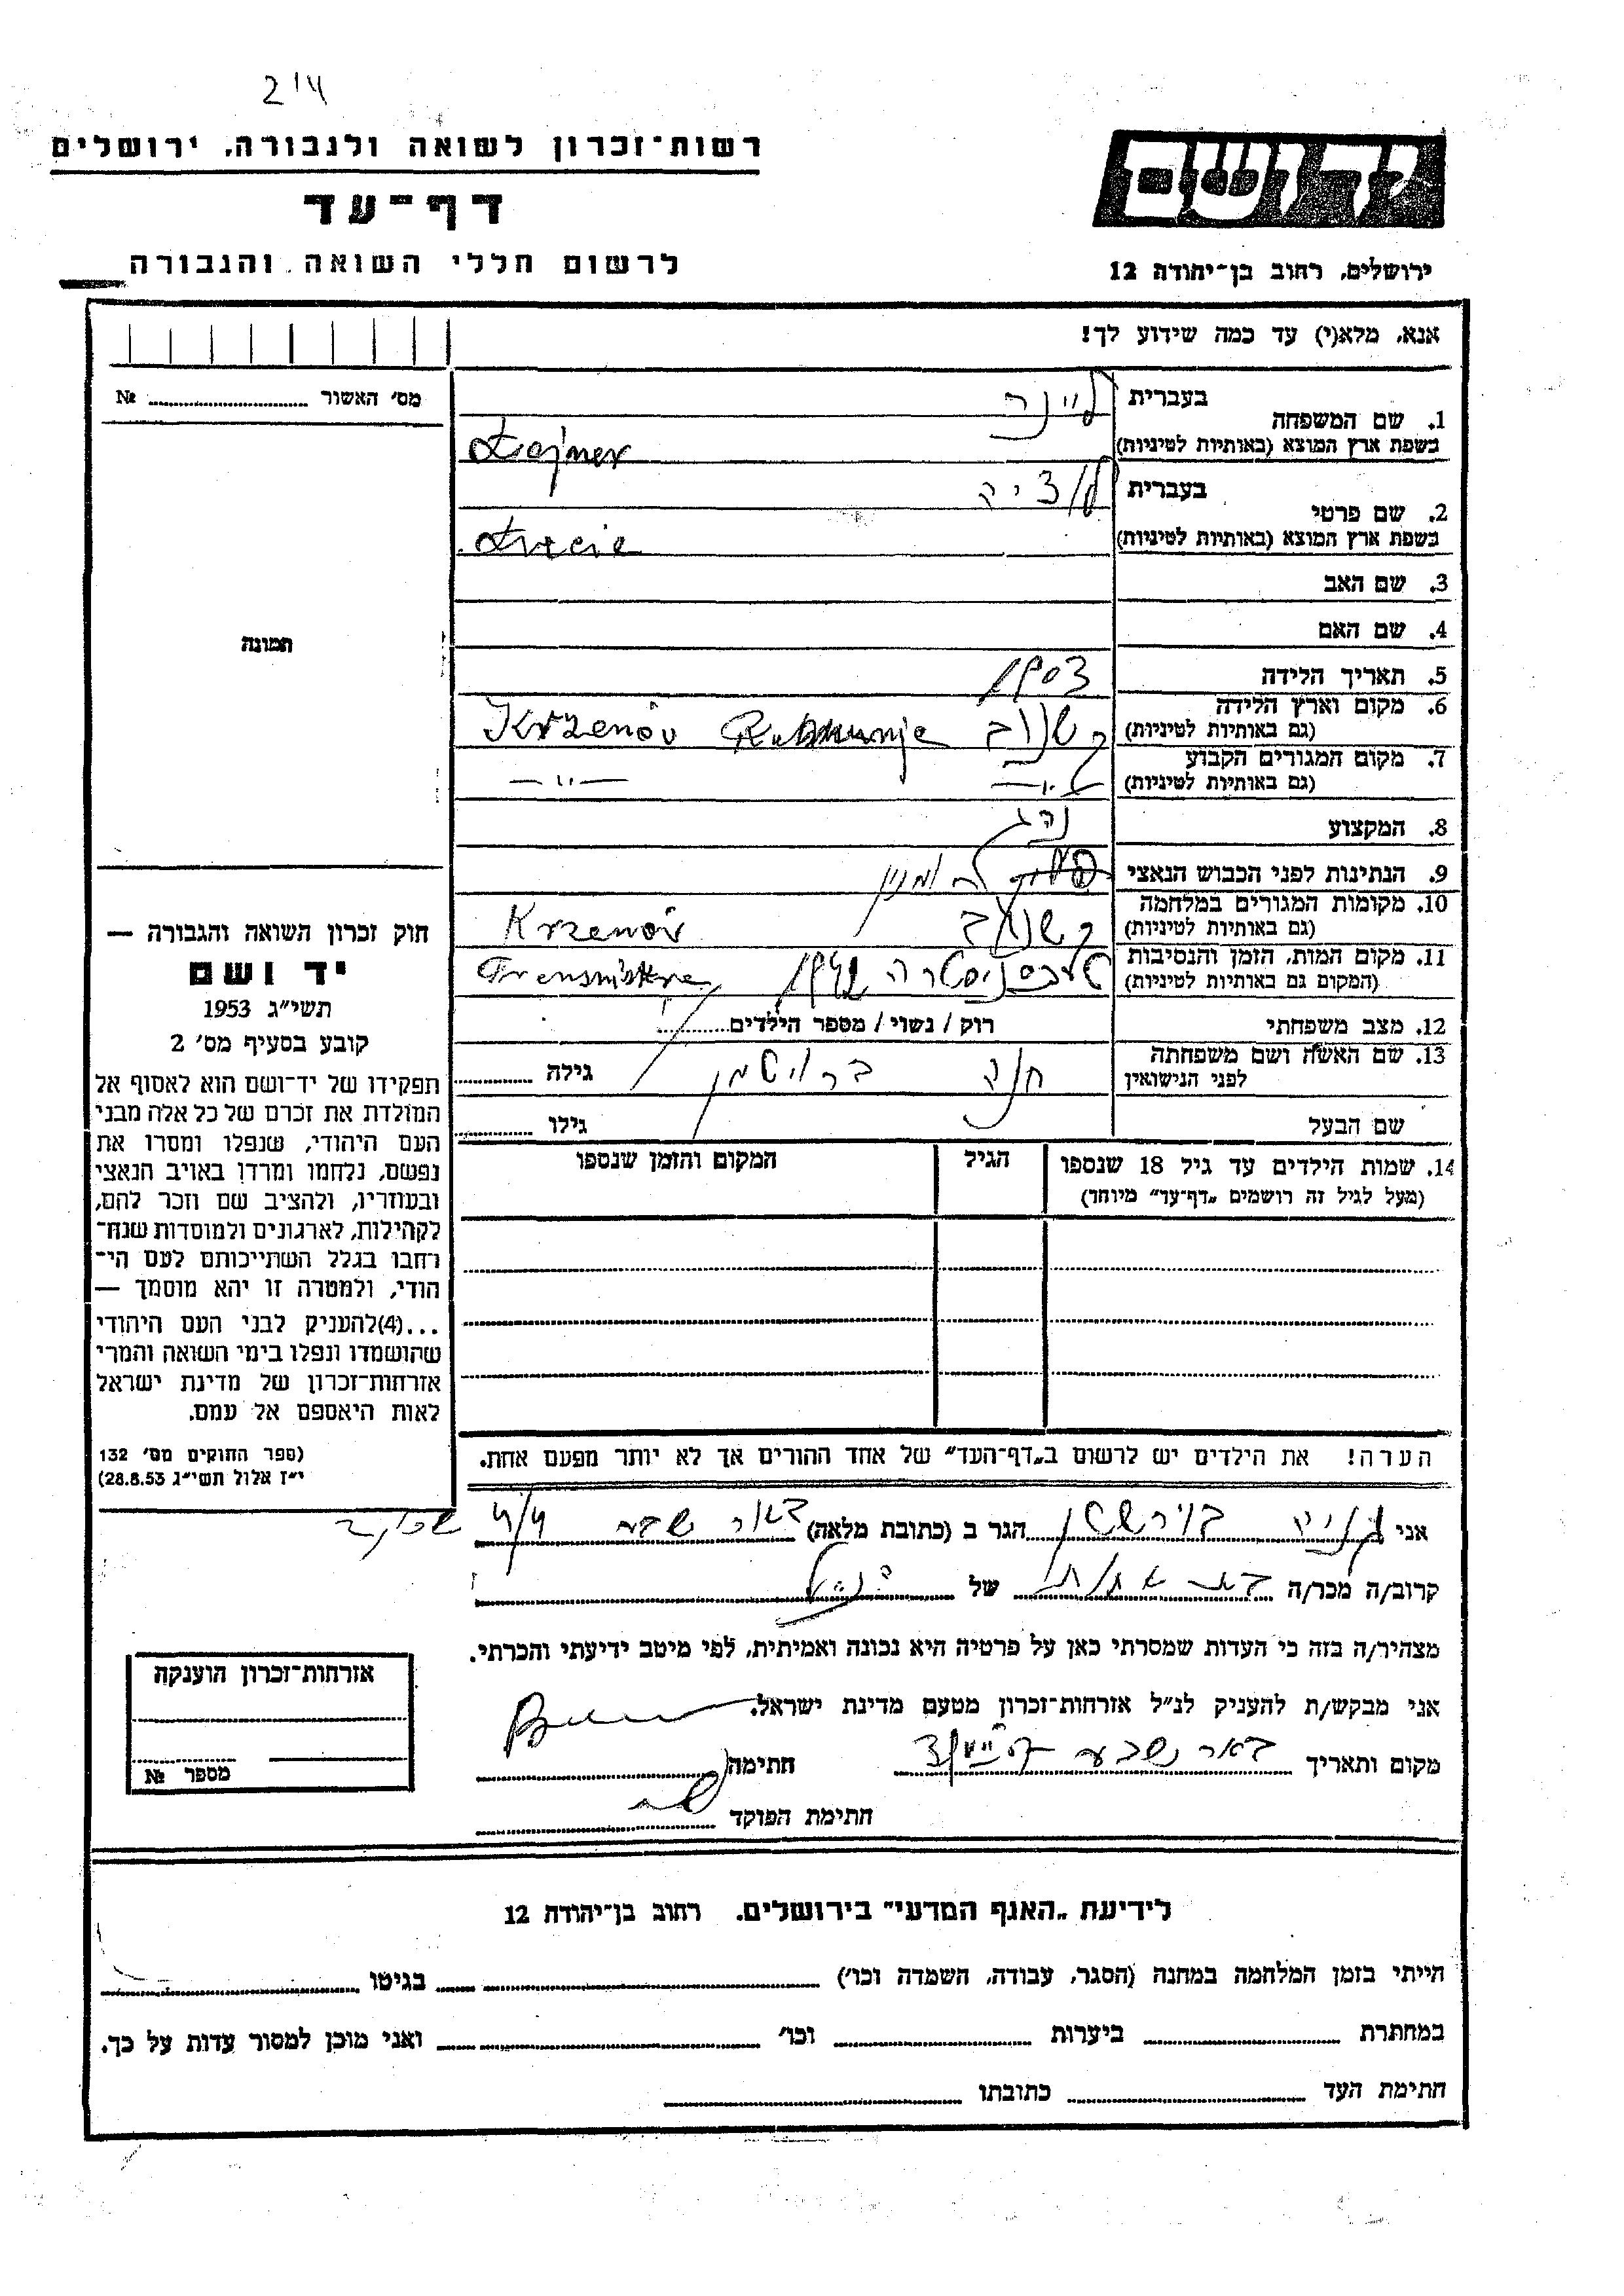 214
רשות־זכרון לשואה ולגבורה, ירושלים
דף־עד
לרשום חללי השואה והגבורה
יד ושם
ירושלים, רחוב בן־יהודה 12
אנא, מלא(י) עד כמה שידוע לך!
מס׳ האשור № 
1. שם המשפחה
בעברית ליינר
בשפת ארץ המוצא (באותיות לטיניות) Lajner
2. שם פרטי
בעברית
בשפת ארץ המוצא (באותיות לטיניות)
3. שם האב
4. שם האם
5. תאריך הלידה 1903
6. מקום וארץ הלידה
(גם באותיות לטיניות) Krzenów
7. מקום המגורים הקבוע
(גם באותיות לטיניות) —"— —"—
8. המקצוע נהג
9. הנתינות לפני הכבוש הנאצי
10. מקומות המגורים במלחמה
(גם באותיות לטיניות) Krzenów
11. מקום המות, הזמן והנסיבות
(המקום גם באותיות לטיניות) טרנסניסטריה
12. מצב משפחתי רוק / נשוי / מספר הילדים
13. שם האשה ושם משפחתה
לפני הנישואין חנה גילה
שם הבעל גילו
14. שמות הילדים עד גיל 18 שנספו
(מעל לגיל זה רושמים „דף־עד” מיוחד)
הגיל
המקום והזמן שנספו
הערה! את הילדים יש לרשום ב„דף־העד” של אחד ההורים אך לא יותר מפעם אחת.
תמונה
חוק זכרון השואה והגבורה —
יד ושם
תשי״ג 1953
קובע בסעיף מס׳ 2
תפקידו של יד־ושם הוא לאסוף אל
המולדת את זכרם של כל אלה מבני
העם היהודי, שנפלו ומסרו את
נפשם, נלחמו ומרדו באויב הנאצי
ובעוזריו, ולהציב שם וזכר להם,
לקהילות, לארגונים ולמוסדות שנח־
רבו בגלל השתייכותם לעם הי־
הודי, ולמטרה זו יהא מוסמך —
...(4)להעניק לבני העם היהודי
שהושמדו ונפלו בימי השואה והמרי
אזרחות־זכרון של מדינת ישראל
לאות היאספם אל עמם.
(ספר החוקים מס׳ 132
י״ז אלול תשי״ג 28.8.53)
אני הגר ב (כתובת מלאה) באר שבע
קרוב/ה מכר/ה של
מצהיר/ה בזה כי העדות שמסרתי כאן על פרטיה היא נכונה ואמיתית, לפי מיטב ידיעתי והכרתי.
אני מבקש/ת להעניק לנ״ל אזרחות־זכרון מטעם מדינת ישראל.
מקום ותאריך באר שבע חתימה
חתימת הפוקד
אזרחות־זכרון הוענקה
מספר №
לידיעת „האגף המדעי” בירושלים, רחוב בן־יהודה 12
הייתי בזמן המלחמה במחנה (הסגר, עבודה, השמדה וכו׳) בגיטו
במחתרת ביערות וכו׳ ואני מוכן למסור עדות על כך.
חתימת העד כתובתו